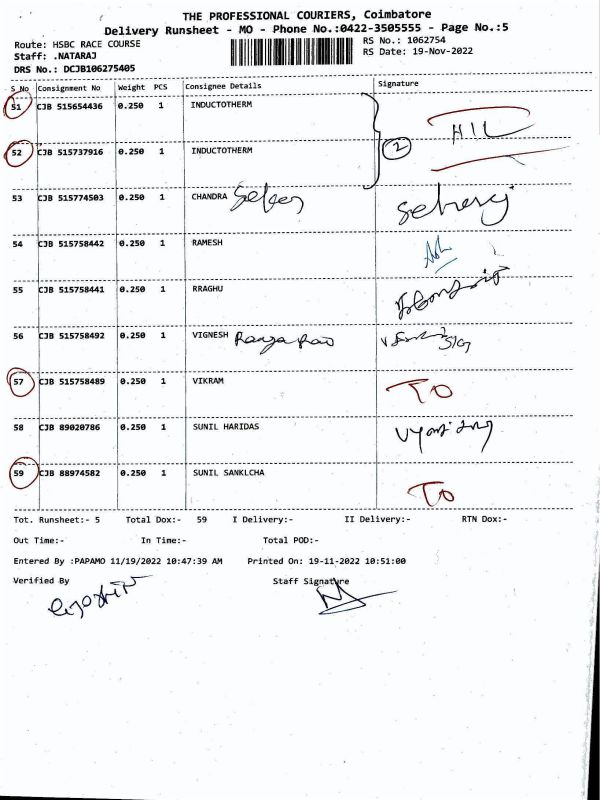 THE PROFESSIONAL COURIERS, Coimbatore
Delivery Runsheet - MO - Phone No.:0422-3505555 - Page No.:5
Route: HSBC RACE COURSE RS No.: 1062754
Staff: .NATARAJ RS Date: 19-Nov-2022
DRS No.: DCJB106275405
S No Consignment No Weight PCS Consignee Details Signature
51 CJB 515654436 0.250 1 INDUCTOTHERM
2 HIL
52 CJB 515737916 0.250 1 INDUCTOTHERM
53 CJB 515774503 0.250 1 CHANDRA
54 CJB 515758442 0.250 1 RAMESH
55 CJB 515758441 0.250 1 RRAGHU
56 CJB 515758492 0.250 1 VIGNESH Ranga Rao
57 CJB 515758489 0.250 1 VIKRAM TO
58 CJB 89020786 0.250 1 SUNIL HARIDAS
59 CJB 88974582 0.250 1 SUNIL SANKLCHA TO
Tot. Runsheet:- 5 Total Dox:- 59 I Delivery:- II Delivery:- RTN Dox:-
Out Time:- In Time:- Total POD:-
Entered By :PAPAMO 11/19/2022 10:47:39 AM Printed On: 19-11-2022 10:51:00
Verified By Staff Signature